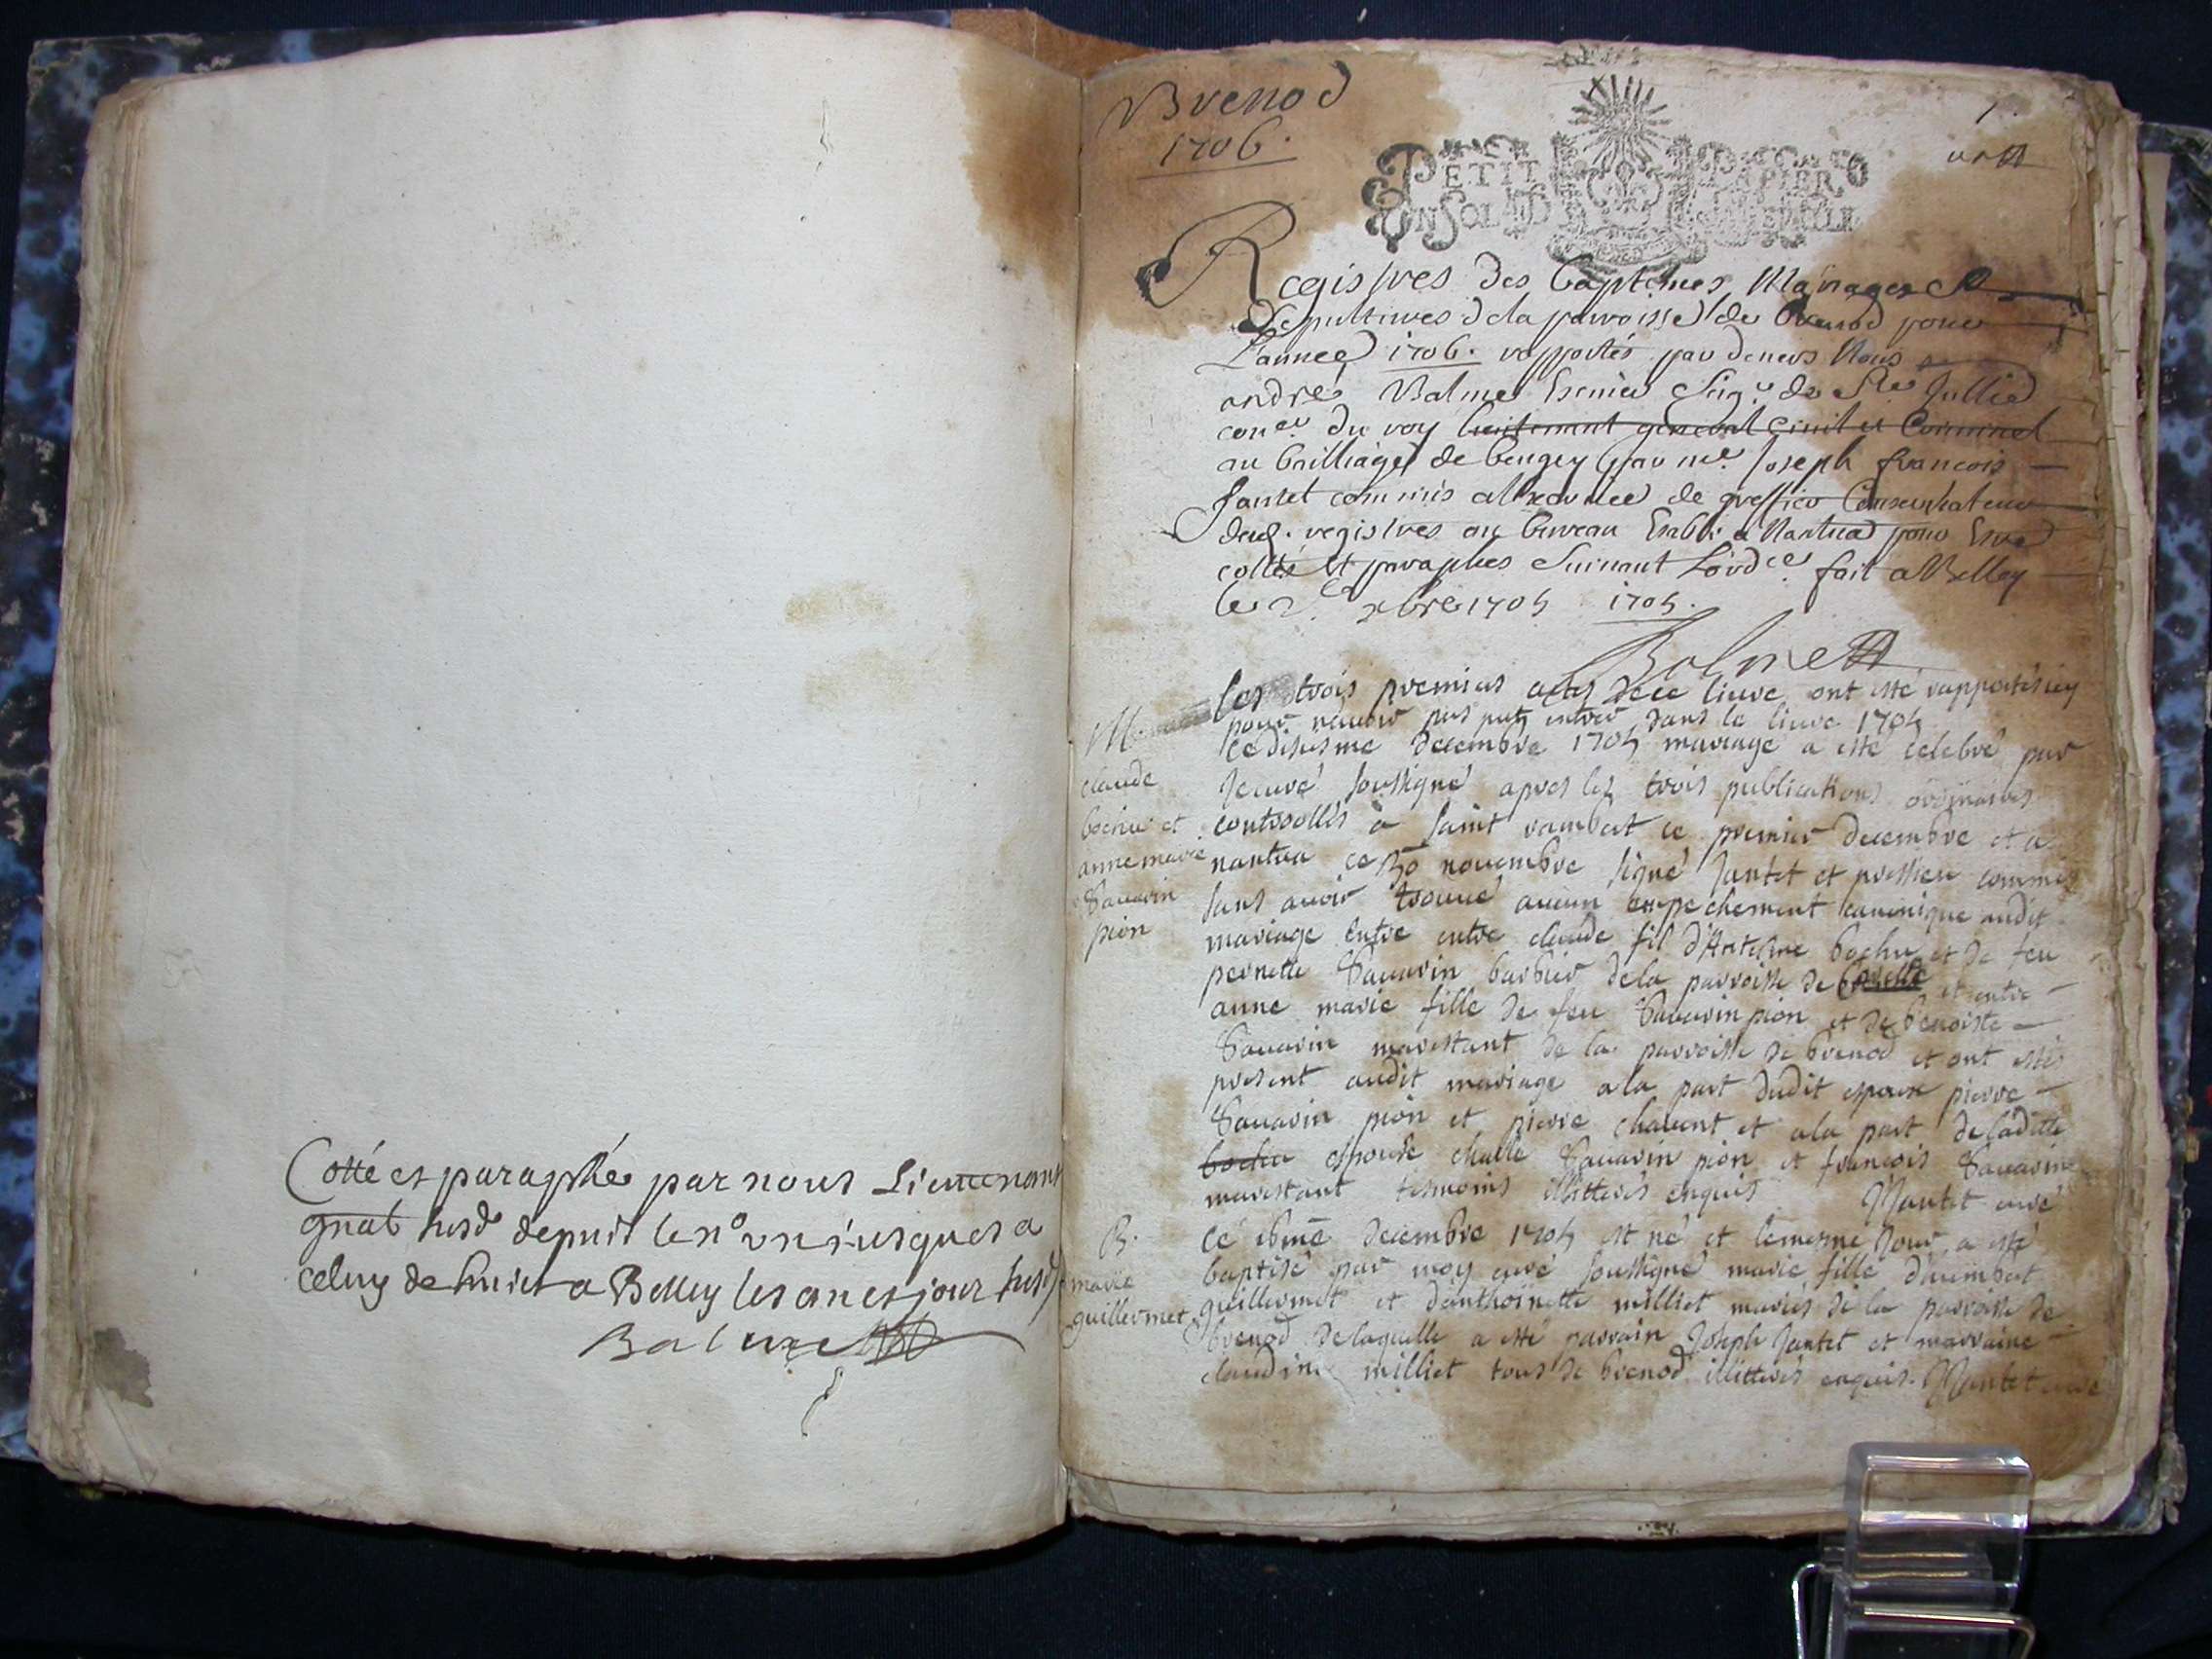 Cotté et paraphé par nous Lieutenant
gnal susd depuis le no un iusques a
celuy de huict a Belley les an et jour susd
Balme
Brenod
1706.
1
un
PETIT PAPIER
UN SOL
Registres des baptemes Mariages et
Sepultures de la parroisse de Brenod pour
L'annee 1706. rapportés par devers Nous
andre Balme Escuier Seigr de Ste Jullie
coner du roy lieutenant general Civil et Criminel
au bailliage de beugey par me Joseph francois
Jantet commis al'exercice de greffier Conservateur
desd. registres au bureau Estably a Nantua pour Estre
cottés et paraphes Suivant Lordce fait a Belley
le xbre 1705 1705.
Balme
les trois premiers actes de ce livre ont esté rapportés icy
pour n'avoir pas put entrer dans le livre 1705
M
claude
bochu et
anne marie
Savarin
pion
ce disiesme decembre 1705 mariage a esté celebré par
Je curé soussigné apres les trois publications ordinaires
contrôllés à saint rambert ce premier decembre et a
nantua ce 30 novembre signé Jantet et commis
sans avoir trouvé aucun empechement canonique audit
mariage entre entre claude fil d'Antelme bochu et de feu
pernette Savarin barbier de la parroisse de et entre
anne marie fille de feu Savarin pion et de benoiste
Savarin marestant de la parroisse de brenod et ont estés
present audit mariage a la part dudit espoux pierre
Savarin pion et pierre chavent et a la part de laditte
bochu espouse charle Savarin pion et francois Savarin
marestant tesmoins illitterés enquis Mantet curé
B.
marie
guillermet
Ce decembre 1705 est né et lemesme Jour a esté
baptisé par moy curé soussigné marie fille d'humbert
guillermet et d'anthoinette milliet mariés de la parroisse de
brenod de laquelle a esté parrain Joseph Jantet et marraine
claudine milliet tous de brenod illitterés enquis. Mantet curé